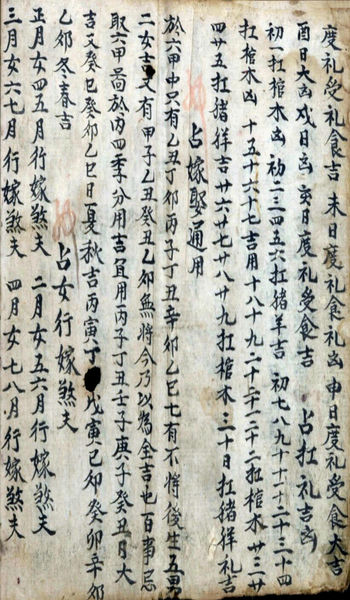 度礼受礼食吉 未日度礼食礼凶 申日度礼受食大吉
酉日大凶戌日凶 亥日度礼受食吉 占扛礼吉凶
初一扛棺木凶 初二三四五六扛猪羊吉 初七八九十十一十二十三十四
扛棺木凶 十五十六十七吉用十八十九二十二十一二十二扛棺木 廿三廿
四廿五扛猪羊吉 廿六廿七廿八廿九扛棺木 三十日扛猪羊礼吉
占嫁娶通用
於六甲中只有乙丑丁卯丙子丁丑辛卯乙巳七有不将後生五男
二女吉又有甲子乙丑癸丑乙卯無将今乃以為全吉也百事忌
取六甲啚於内四季分用吉宜用丙子丁丑壬子庚子癸丑日大
吉又癸巳癸卯乙巳日夏秋吉丙寅丁 戊寅己卯癸卯辛卯
乙卯冬春吉 占女行嫁煞夫
正月女四五月行嫁煞夫 二月女五六月行嫁煞夫
三月女六七月行嫁煞夫 四月女七八月行嫁煞夫